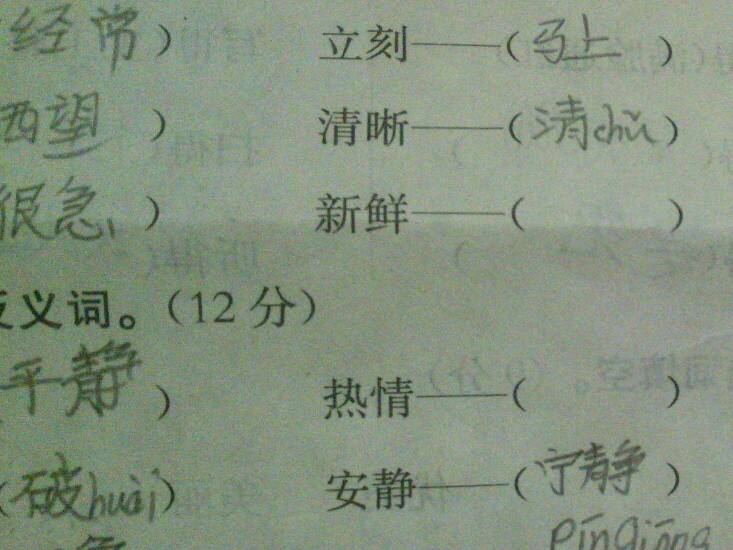 经常） 立刻——（马上）
西望） 清晰——（清chǔ）
很急） 新鲜——（ ）
反义词。（12分）
平静） 热情——（ ）
（破huài） 安静——（宁静）